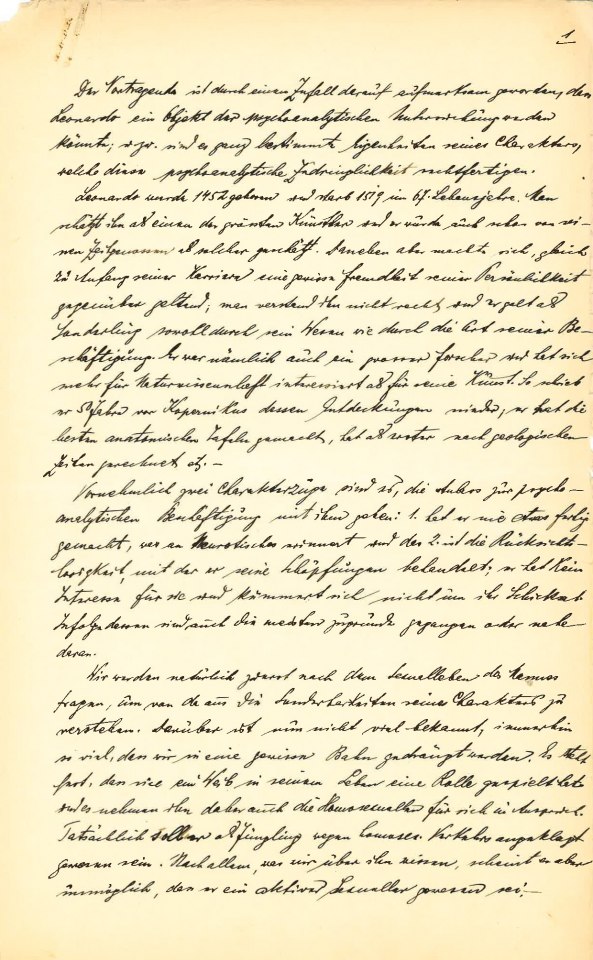 1
Der Vortragende ist durch einen Zufall darauf aufmerksam geworden, dass
Leonardo ein Objekt der psychoanalytischen Untersuchung werden
könnte; u. zw. sind es ganz bestimmte Eigenheiten seines Charakters,
welche diese psychoanalytische Zudringlichkeit rechtfertigen.
Leonardo wurde 1452 geboren und starb 1519 im 67. Lebensjahre. Man
schätzt ihn als einen der grössten Künstler und er wurde auch schon von sei-
nen Zeitgenossen als solcher geschätzt. Daneben aber machte sich, gleich
zu Anfang seiner Karriere eine gewisse Fremdheit seiner Persönlichkeit
gegenüber geltend; man verstand ihn nicht recht und er galt als
Sonderling sowohl durch sein Wesen wie durch die Art seiner Be-
schäftigung. Er war nämlich auch ein grosser Forscher und hat sich
mehr für Naturwissenschaft interessiert als für seine Kunst. So schrieb
er 50 Jahre vor Kopernikus dessen Entdeckungen nieder, er hat die
besten anatomischen Tafeln gemacht, hat als erster nach geologischen
Zeiten gerechnet etc. —
Vornehmlich zwei Charakterzüge sind es, die Anlass zur psycho-
analytischen Beschäftigung mit ihm geben: 1. hat er nie etwas fertig
gemacht, was an Neurotisches erinnert und das 2. ist die Rücksichts-
losigkeit, mit der er seine Schöpfungen behandelt; er hat kein
Interesse für sie und kümmert sich nicht um ihr Schicksal.
Infolgedessen sind auch die meisten zugrunde gegangen oder nahe
daran.
Wir werden natürlich zuerst nach dem Sexualleben des Mannes
fragen, um von da aus die Sonderbarkeiten seines Charakters zu
verstehen. Darüber ist nun nicht viel bekannt, immerhin
so viel, dass wir in eine gewisse Bahn gedrängt werden. Es steht
fest, dass nie ein Weib in seinem Leben eine Rolle gespielt hat
und es nehmen ihn daher auch die Homosexuellen für sich in Anspruch.
Tatsächlich soll er als Jüngling wegen homosex. Verkehrs angeklagt
gewesen sein. Nach allem, was wir über ihn wissen, scheint es aber
unmöglich, dass er ein aktiver Sexueller gewesen sei. —